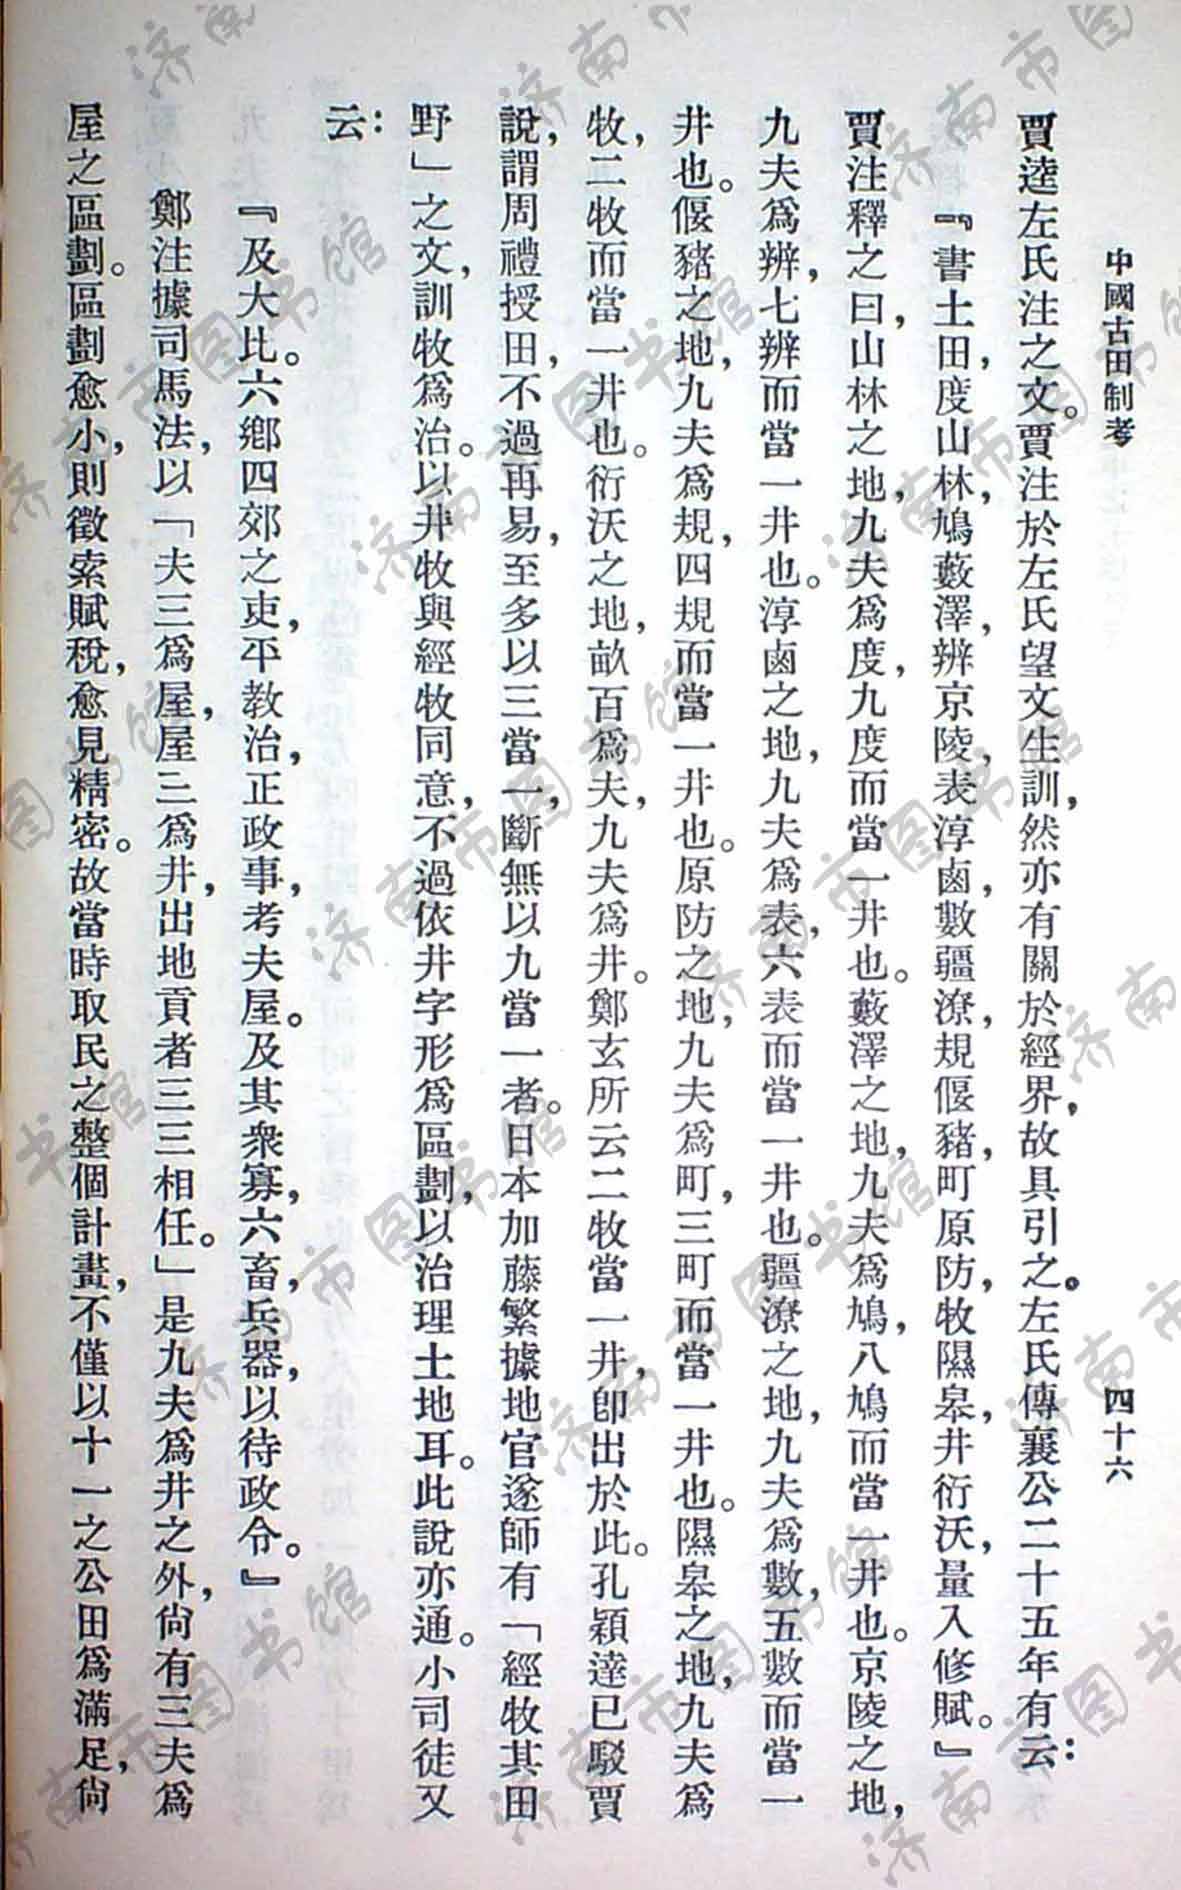 中國古田制考
四十六
賈逵左氏注之文。賈注於左氏望文生訓，然亦有關於經界，故具引之。左氏傳襄公二十五年有云：
『書土田，度山林，鳩藪澤，辨京陵，表淳鹵，數疆潦，規偃豬，町原防，牧隰皋，井衍沃，量入修賦。』
賈注釋之曰，山林之地，九夫爲度，九度而當一井也。藪澤之地，九夫爲鳩，八鳩而當一井也。京陵之地，
九夫爲辨，七辨而當一井也。淳鹵之地，九夫爲表，六表而當一井也。疆潦之地，九夫爲數，五數而當一
井也。偃豬之地，九夫爲規，四規而當一井也。原防之地，九夫爲町，三町而當一井也。隰皋之地，九夫爲
牧，二牧而當一井也。衍沃之地，畝百爲夫，九夫爲井。鄭玄所云二牧當一井，卽出於此。孔穎達已駁賈
說，謂周禮授田，不過再易，至多以三當一，斷無以九當一者。日本加藤繁據地官遂師有「經牧其田
野」之文，訓牧爲治。以井牧與經牧同意，不過依井字形爲區劃，以治理土地耳。此說亦通。小司徒又
云：
『及大比。六鄉四郊之吏，平教治，正政事，考夫屋。及其衆寡，六畜，兵器，以待政令。』
鄭注據司馬法，以「夫三爲屋，屋三爲井，出地貢者三三相任。」是九夫爲井之外，尙有三夫爲
屋之區劃。區劃愈小，則徵索賦稅，愈見精密。故當時取民之整個計畫，不僅以十一之公田爲滿足，尙
济南市图书馆